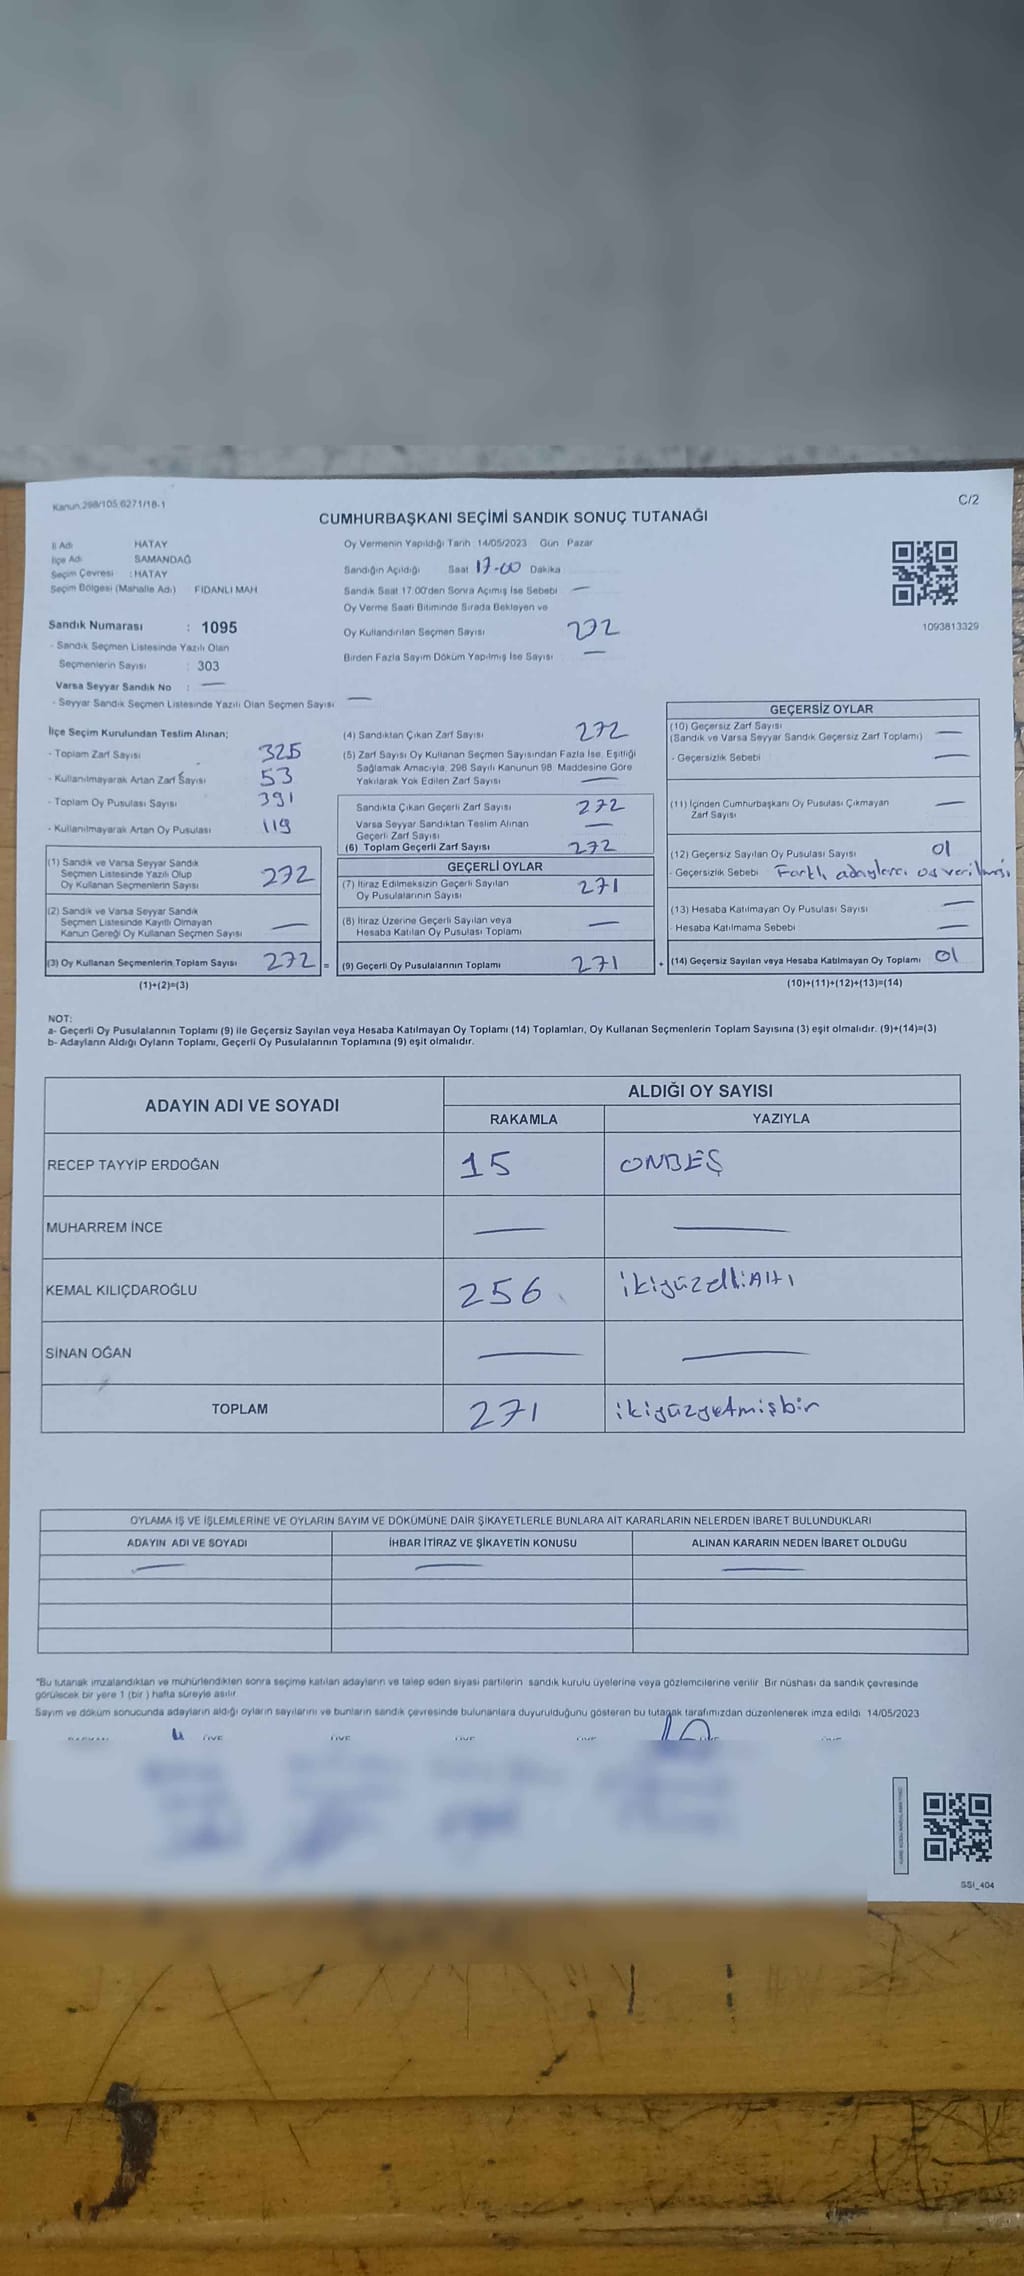 Kanun.298/105,6271/18-1
C/2
CUMHURBAŞKANI SEÇİMİ SANDIK SONUÇ TUTANAĞI
İl Adı HATAY
İlçe Adı SAMANDAĞ
Seçim Çevresi : HATAY
Seçim Bölgesi (Mahalle Adı) FIDANLI MAH
Sandık Numarası : 1095
- Sandık Seçmen Listesinde Yazılı Olan
Seçmenlerin Sayısı : 303
Varsa Seyyar Sandık No : —
- Seyyar Sandık Seçmen Listesinde Yazılı Olan Seçmen Sayısı —
Oy Vermenin Yapıldığı Tarih 14/05/2023 Gün Pazar
Sandığın Açıldığı Saat 17-00 Dakika
Sandık Saat 17:00'den Sonra Açımış İse Sebebi —
Oy Verme Saati Bitiminde Sırada Bekleyen ve
Oy Kullandırılan Seçmen Sayısı 272
Birden Fazla Sayım Döküm Yapılmış İse Sayısı —
1093813329
İlçe Seçim Kurulundan Teslim Alınan;
- Toplam Zarf Sayısı 325
- Kullanılmayarak Artan Zarf Sayısı 53
- Toplam Oy Pusulası Sayısı 391
- Kullanılmayarak Artan Oy Pusulası 119
(1) Sandık ve Varsa Seyyar Sandık
Seçmen Listesinde Yazılı Olup
Oy Kullanan Seçmenlerin Sayısı 272
(2) Sandık ve Varsa Seyyar Sandık
Seçmen Listesinde Kayıtlı Olmayan
Kanun Gereği Oy Kullanan Seçmen Sayısı —
(3) Oy Kullanan Seçmenlerin Toplam Sayısı 272 =
(1)+(2)=(3)
(4) Sandıktan Çıkan Zarf Sayısı 272
(5) Zarf Sayısı Oy Kullanan Seçmen Sayısından Fazla İse, Eşitliği
Sağlamak Amacıyla, 298 Sayılı Kanunun 98. Maddesine Göre
Yakılarak Yok Edilen Zarf Sayısı —
Sandıkta Çıkan Geçerli Zarf Sayısı 272
Varsa Seyyar Sandıktan Teslim Alınan
Geçerli Zarf Sayısı —
(6) Toplam Geçerli Zarf Sayısı 272
GEÇERLİ OYLAR
(7) İtiraz Edilmeksizin Geçerli Sayılan
Oy Pusulalarının Sayısı 271
(8) İtiraz Üzerine Geçerli Sayılan veya
Hesaba Katılan Oy Pusulası Toplamı —
(9) Geçerli Oy Pusulalarının Toplamı 271 +
GEÇERSİZ OYLAR
(10) Geçersiz Zarf Sayısı
(Sandık ve Varsa Seyyar Sandık Geçersiz Zarf Toplamı) —
- Geçersizlik Sebebi —
(11) İçinden Cumhurbaşkanı Oy Pusulası Çıkmayan
Zarf Sayısı —
(12) Geçersiz Sayılan Oy Pusulası Sayısı 01
- Geçersizlik Sebebi Farklı adaylara oy verilmesi
(13) Hesaba Katılmayan Oy Pusulası Sayısı —
- Hesaba Katılmama Sebebi —
(14) Geçersiz Sayılan veya Hesaba Katılmayan Oy Toplamı 01
(10)+(11)+(12)+(13)=(14)
NOT:
a- Geçerli Oy Pusulalarının Toplamı (9) ile Geçersiz Sayılan veya Hesaba Katılmayan Oy Toplamı (14) Toplamları, Oy Kullanan Seçmenlerin Toplam Sayısına (3) eşit olmalıdır. (9)+(14)=(3)
b- Adayların Aldığı Oyların Toplamı, Geçerli Oy Pusulalarının Toplamına (9) eşit olmalıdır.
ADAYIN ADI VE SOYADI ALDIĞI OY SAYISI
RAKAMLA YAZIYLA
RECEP TAYYİP ERDOĞAN 15 ONBEŞ
MUHARREM İNCE — —
KEMAL KILIÇDAROĞLU 256 ikiyüzelliAltı
SİNAN OĞAN — —
TOPLAM 271 ikiyüzyetmişbir
OYLAMA İŞ VE İŞLEMLERİNE VE OYLARIN SAYIM VE DÖKÜMÜNE DAİR ŞİKAYETLERLE BUNLARA AİT KARARLARIN NELERDEN İBARET BULUNDUKLARI
ADAYIN ADI VE SOYADI İHBAR İTİRAZ VE ŞİKAYETİN KONUSU ALINAN KARARIN NEDEN İBARET OLDUĞU
— — —
"Bu tutanak imzalandıktan ve mühürlendikten sonra seçime katılan adayların ve talep eden siyasi partilerin sandık kurulu üyelerine veya gözlemcilerine verilir. Bir nüshası da sandık çevresinde
görülecek bir yere 1 (bir ) hafta süreyle asılır.
Sayım ve döküm sonucunda adayların aldığı oyların sayılarını ve bunların sandık çevresinde bulunanlara duyurulduğunu gösteren bu tutanak tarafımızdan düzenlenerek imza edildi 14/05/2023
SSI_404